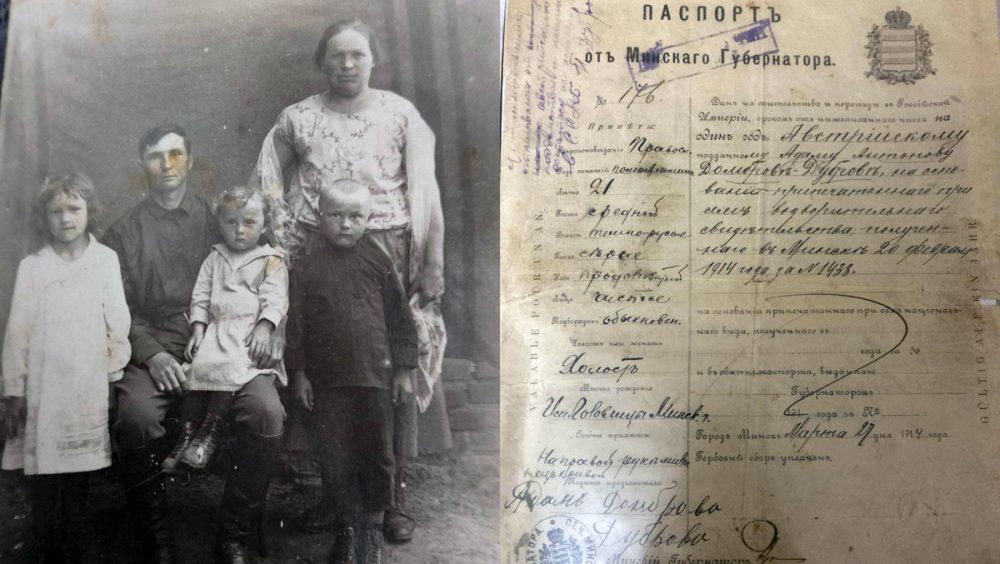 ПАСПОРТЪ
отъ Минскаго Губернатора.
№ 176.
Примѣты:
Вѣроисповѣданія Правосл.
Лѣта 21
Ростъ средній
Волосы темнорусые
Глаза сѣрые
Носъ продолговатый
Лицо чистое
Подбородокъ обыкновен.
Холостъ или женатъ
Холостъ
Мѣсто рожденія
Минск. г.
Особыя примѣты:
На правой рукѣ мизи
нецъ кривой
Подпись предъявителя
Адамъ Домброва
Дуброва
Данъ на жительство и переѣзды въ Россійской
Имперіи, срокомъ отъ нижеписаннаго числа на
одинъ годъ, Австрійскому
подданному Адаму Антонову
Домбровъ-Дубровъ, на осно
ваніи припечатаннаго при
семъ водворительнаго
свидѣтельства, получен
наго въ Минскѣ 20 феврал
1914 года за N 1438.
на основаніи припечатаннаго при семъ націонал
наго вида, полученнаго въ
года за №
и въ обмѣнъ паспорта, выданнаго
Губернаторомъ
191 года за №
Городъ Минскъ, Марта 27 дня 1914 года.
Гербовый сборъ уплаченъ.
Минскій Губернаторъ
VALABLE POUR UN AN.
GÜLTIG AUF EIN JAHR